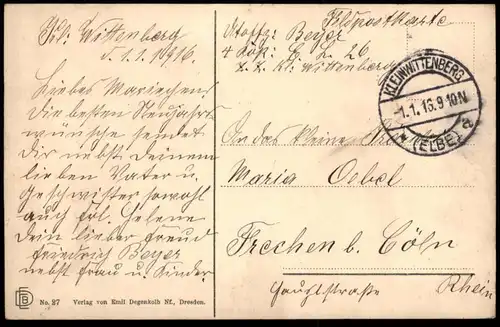 Kl: Wittenberg
d. 1.1.1916.
Liebes Mariechen!
Die besten Neujahrs
wünsche sendet
Dir nebst Deinem
lieben Vater u.
Geschwister sowohl
auch Frl. Helene
Dein lieber Freud
Friedrich Beyer
nebst Frau u. Kinder.
Feldpostkarte
Beyer
4 Kop: E. L. 26
z. Z. Kl: Wittenberg
KLEINWITTENBERG
1.1.16.9-10N
* (ELBE) a
An das kleine
Maria Oebel
Frechen b. Cöln
Hauptstraße Rhein
No. 27 Verlag von Emil Degenkolb Nf., Dresden.